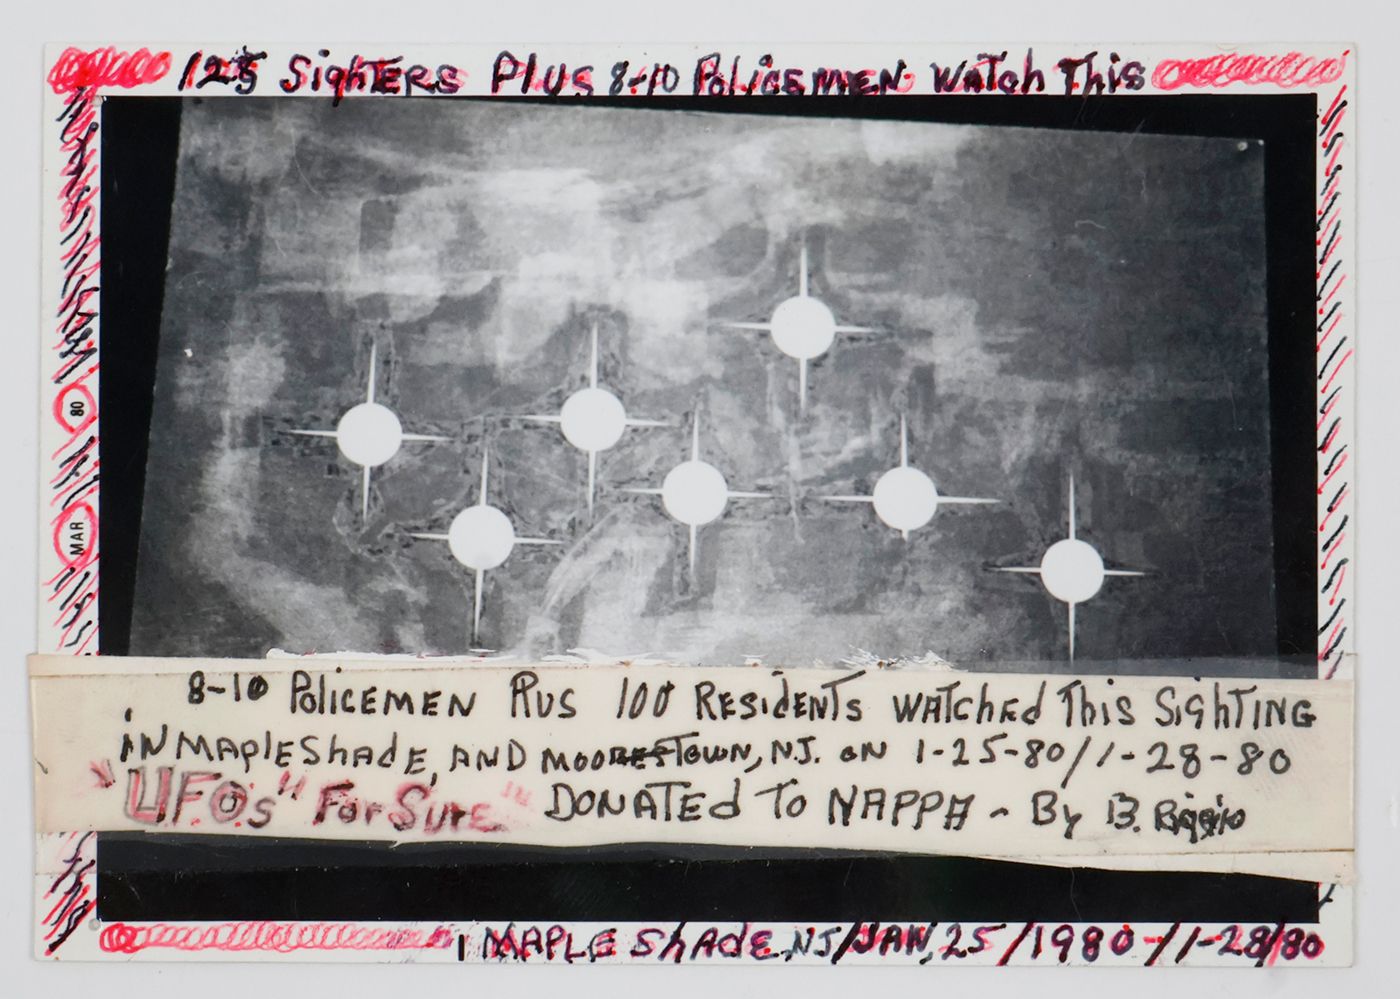 125 SighTERS PlUS 8-10 PoliCEMEN WATCh This
80
MAR
8-10 PoliCEMEN PlUS 100 RESidENTs WATChEd This SighTiNG
iN MAplE ShAdE, AND MOORESTOWN, N.J. ON 1-25-80//1-28-80
"U.F.O.s" "For SurE" DONATEd TO NAPPA - By B.
MAPLE ShAdE, NJ/JAN, 25/1980-/1-28/80